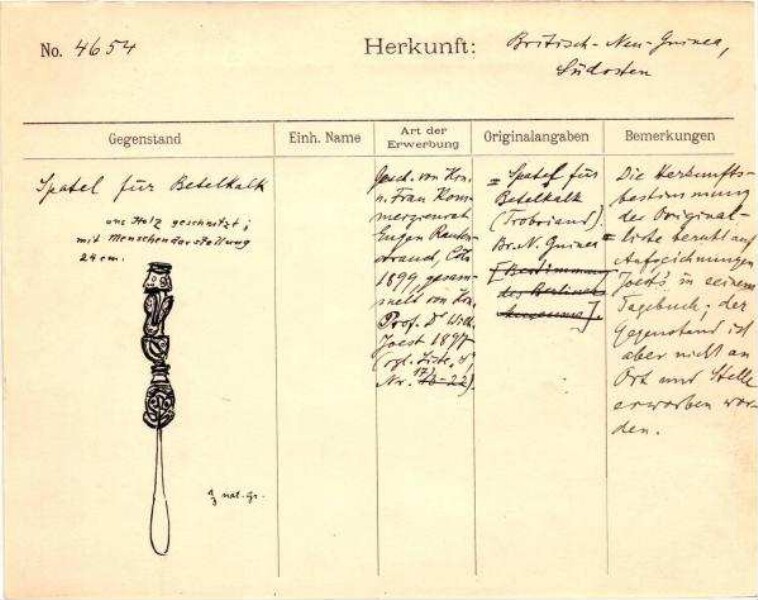 No. 4654
Herkunft: Britisch-Neu-Guinea,
Südosten
Gegenstand
Einh. Name
Art der
Erwerbung
Originalangaben
Bemerkungen
Spatel für Betelkalk
aus Holz geschnitzt;
mit Menschendarstellung
24 cm.
1/3 nat. Gr.
Gesch. von Hrn.
u. Frau Kom-
merzienrat
Eugen Rauten-
strauch, Cöln
1899, gesam-
melt von Hrn.
Prof. Dr Wilh.
Joest 1897
(vgl. Liste,
Nr.
= Spatel für
Betelkalk
(Trobriand).
Br. N. Guinea =
[Bestimmung
des Berliner
Museums].
Die Herkunfts-
bestimmung
der Original-
liste beruht auf
Aufzeichnungen
Joest's in seinem
Tagebuch; der
Gegenstand ist
aber nicht an
Ort und Stelle
erworben wor-
den.